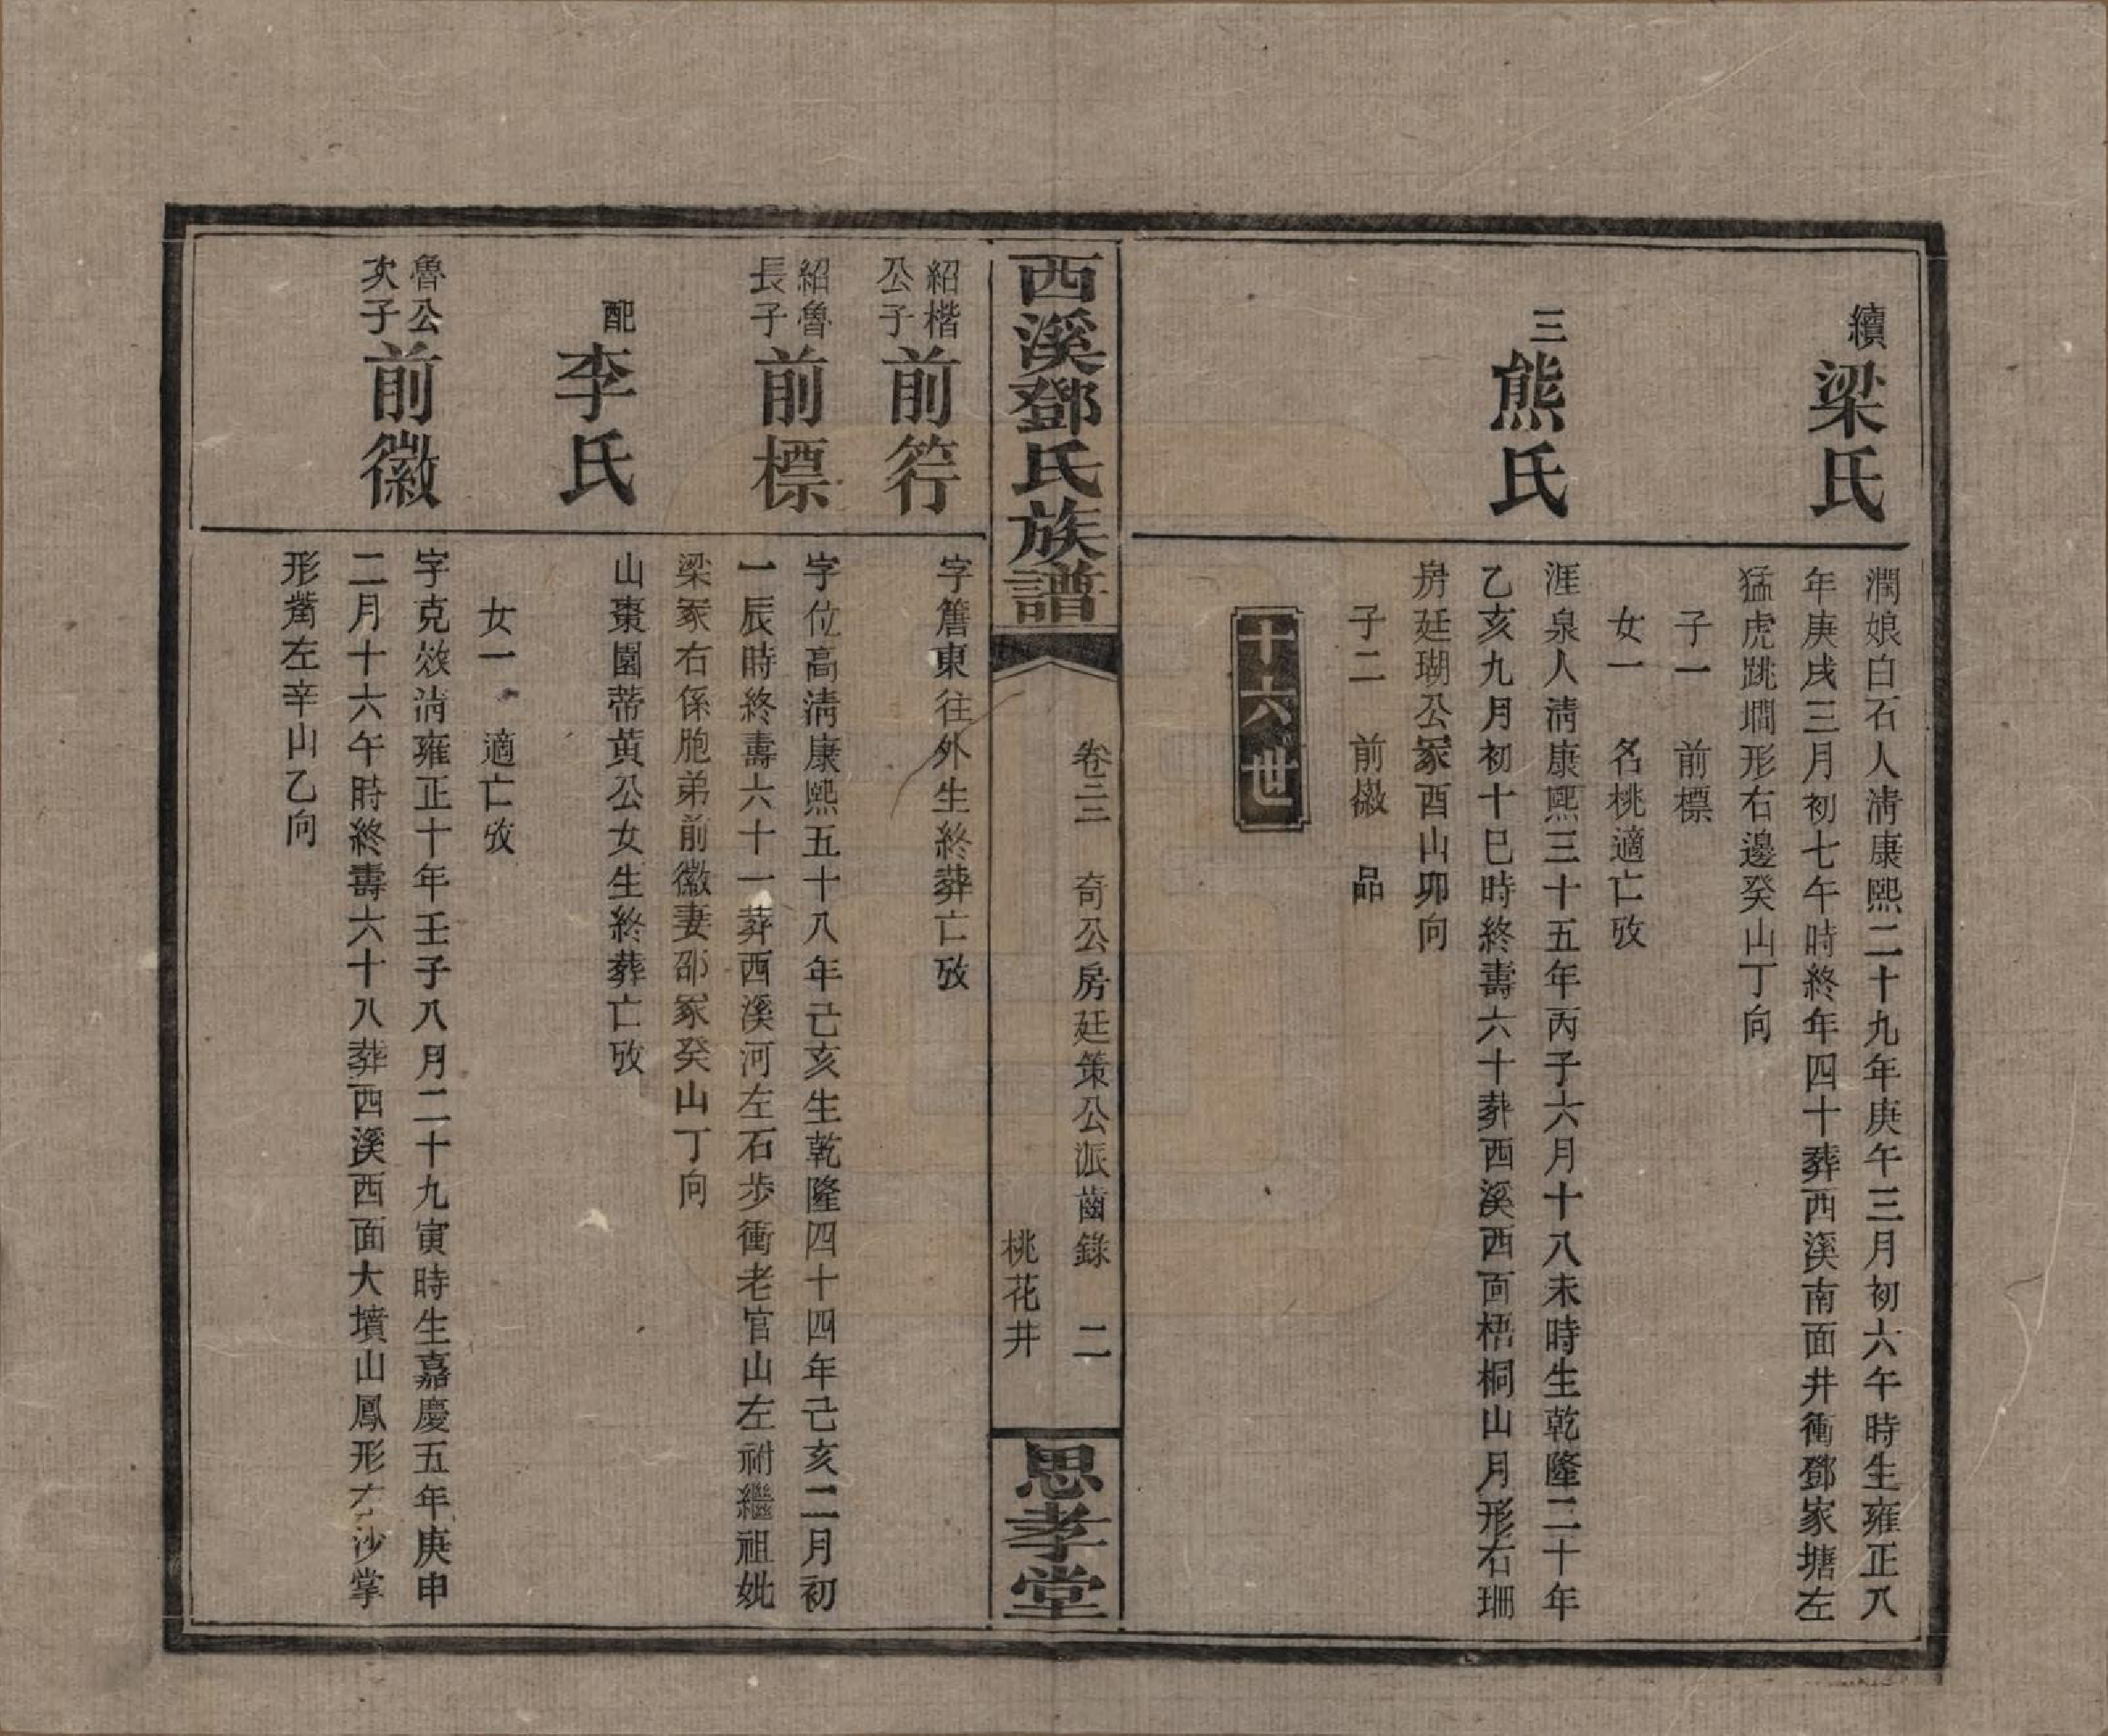 續
梁氏
潤娘白石人淸康熙二十九年庚午三月初六午時生雍正八
年庚戌三月初七午時終年四十葬西溪南面井衝鄧家塘左
猛虎跳墹形右邊癸山丁向
子一 前標
女一 名桃適亡攷
三
熊氏
涯泉人淸康熙三十五年丙子六月十八未時生乾隆二十年
乙亥九月初十巳時終壽六十葬西溪西面梧桐山月形右珊
房廷瑚公冢酉山卯向
子二 前徽 品
十六世
西溪鄧氏族譜
卷三三 奇公房廷策公派齒錄 二
桃花井
思孝堂
紹楷
公子
前符
字舊東往外生終葬亡攷
紹魯
長子
前標
字位高淸康熙五十八年己亥生乾隆四十四年己亥二月初
一辰時終壽六十一葬西溪河左石步衝老官山左祔繼祖妣
梁冢右係胞弟前徽妻邵冢癸山丁向
配
李氏
山棗園蒂黃公女生終葬亡攷
女一 適亡攷
魯公
次子
前徽
字克效淸雍正十年壬子八月二十九寅時生嘉慶五年庚申
二月十六午時終壽六十八葬西溪西面大墳山鳳形左沙掌
形嘴左辛山乙向